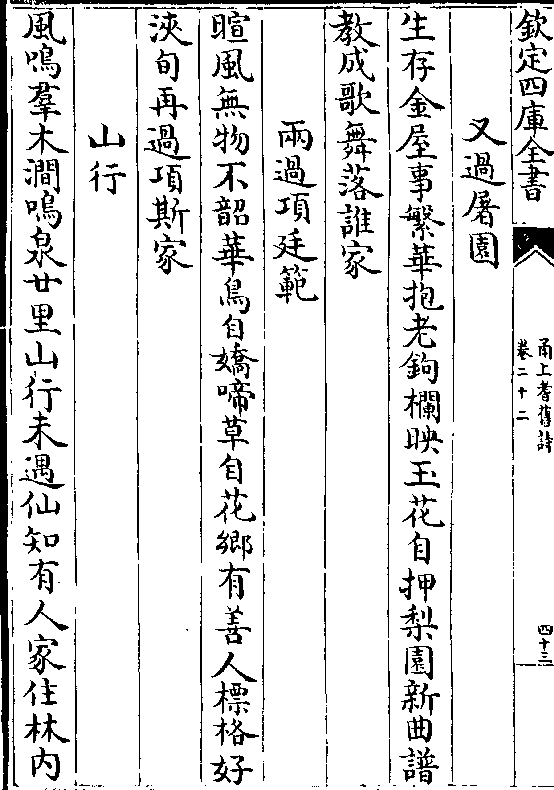 欽定四庫全書
甬上耆舊詩
卷二十二
四十三
又過屠園
生存金屋事繁華抱老鉤欄映玉花自押梨園新曲譜
教成歌舞落誰家
兩過項廷範
暄風無物不韶華鳥自嬌啼草自花鄉有善人標格好
浹旬再過項斯家
山行
風鳴羣木澗鳴泉廿里山行未遇仙知有人家住林內